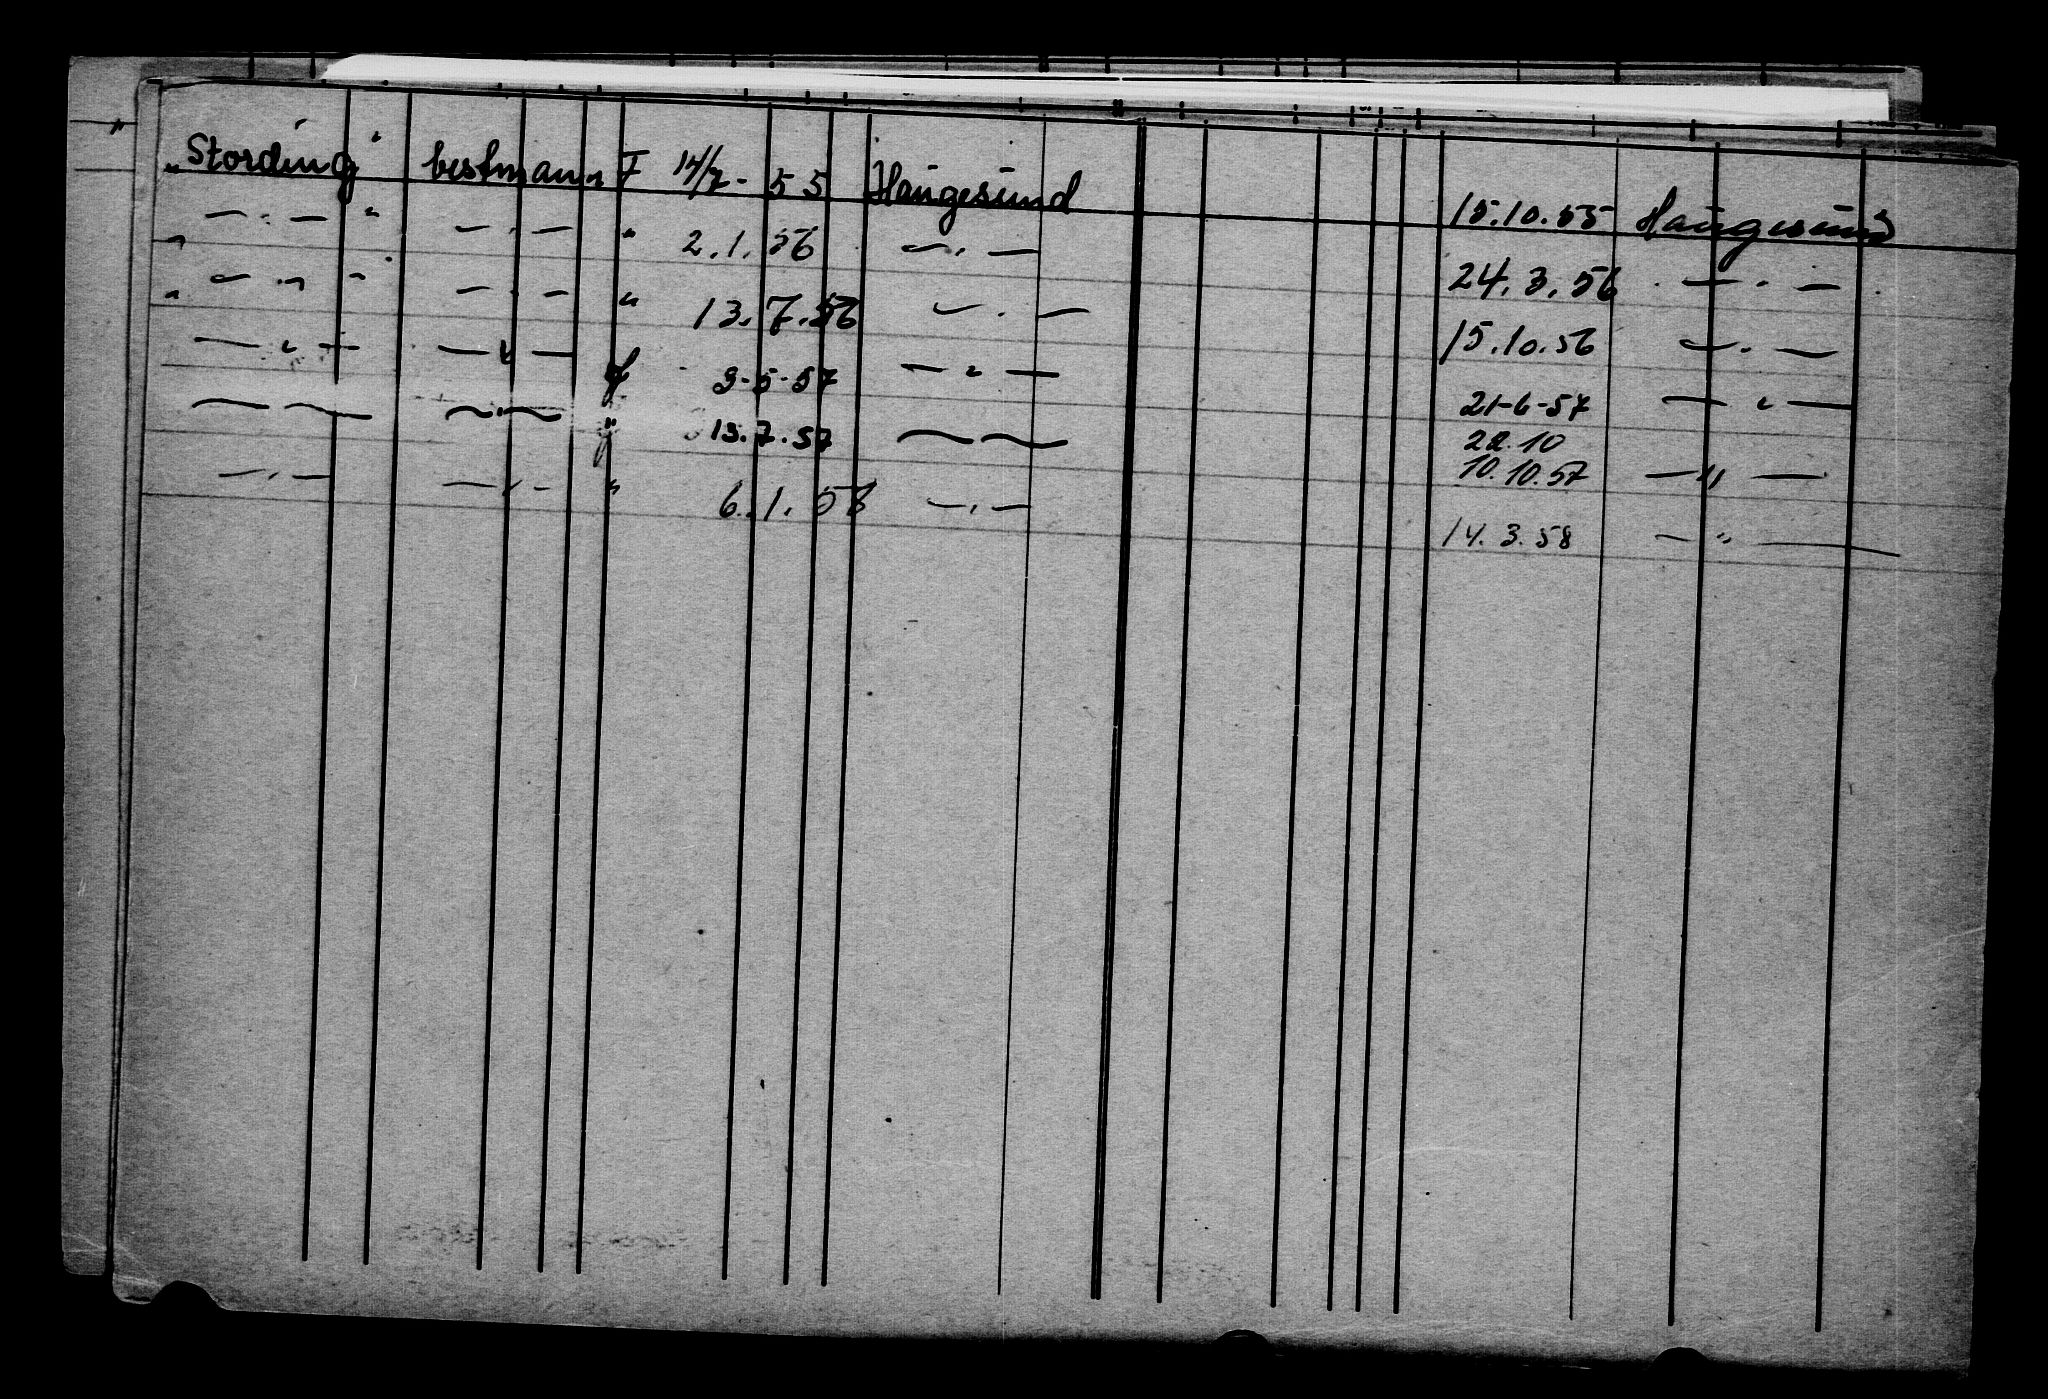 "Stording" bestmann F 14/7-55 Haugesund 15.10.55 Haugesund
" — " — " — " — " 2.1.56 — " — 24.3.56 — " —
" — " — " — " — " 13.7.56 — " — 15.10.56 — " —
— " — — " — f 9-5-57 — " — 21-6-57 — " —
— — — " — " 13.7.57 — — 22.10
10.10.57 — " —
— " — — " — " 6.1.58 — " — 14.3.58 — " —